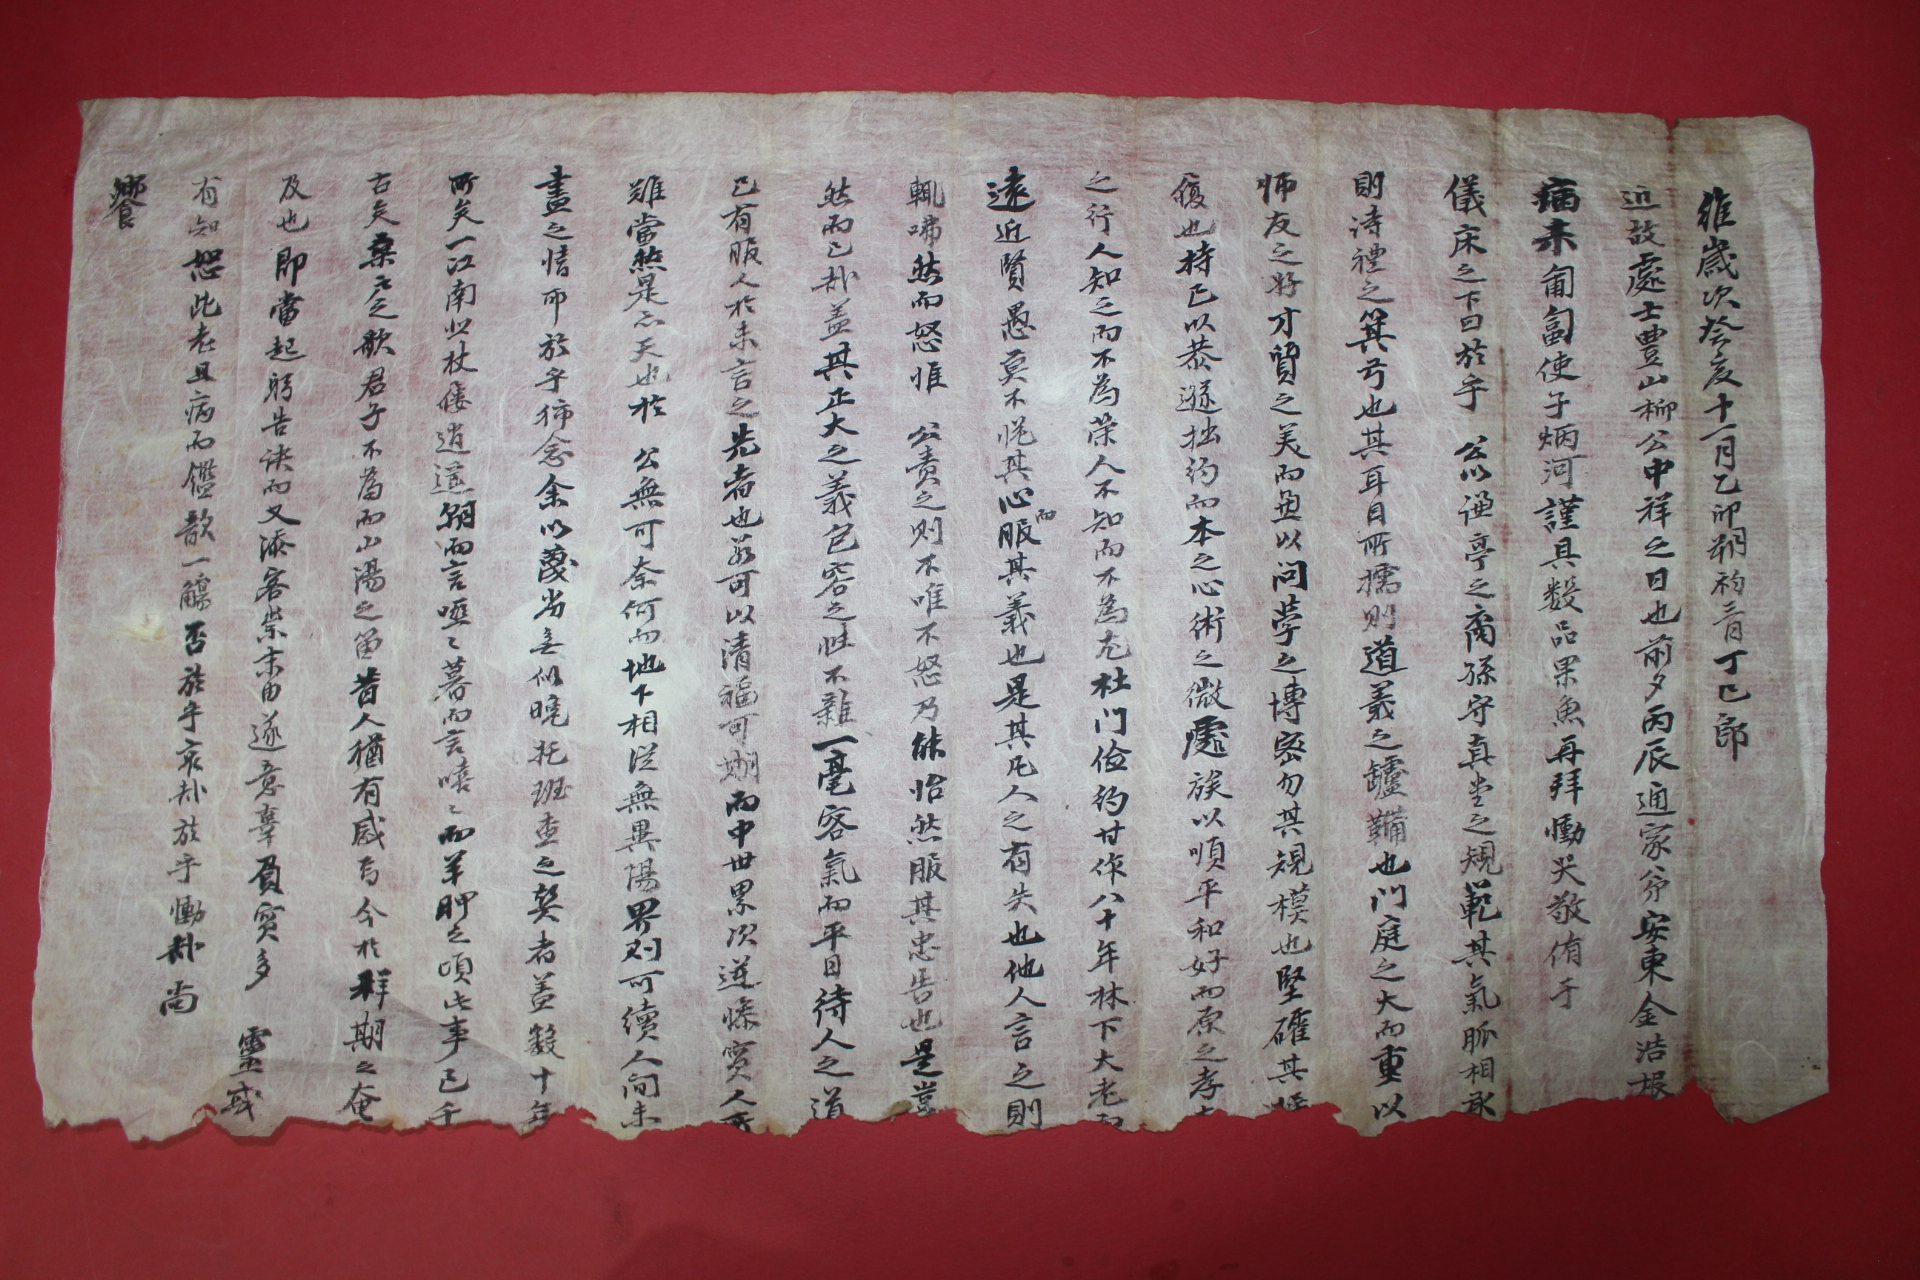 維歲次癸亥十一月乙卯朔初三日丁巳卽
近故處士豊山柳公中祥之日也前夕丙辰通家弟安東金浩根
病未匍匐使子炳河謹具數品果魚再拜慟哭敬侑于
儀床之下曰於乎 公以謙亭之裔孫守眞堂之規範其氣脈相承
則詩禮之箕弓也其耳目所擩則道義之罏鞴也門庭之大而重以
師友之好才質之美而益以問學之博密勿其規模也堅確其
履也持己以恭遜拙約而本之心術之微處族以順平和好而原之孝
之行人知之而不為榮人不知而不為尤杜門儉約甘作八十年林下大老而
遠近賢愚莫不悅其心而服其義也是其凡人之有失也他人言之則
輒咈然而怒惟 公責之則不唯不怒乃能怡然服其忠告也是豈
然而已哉盖其正大之義包容之性不雜一毫客氣而平日待人之道
已有服人於未言之先者也若可以淸福可期而中世累次逆慘實人所
雖當然是亦天也於 公無可奈何而地下相從無異陽界則可續人間未
盡之情而於乎痛念余以蔑劣妄似晩托班查之契者盖數十年
所矣一江南北杖屨逍遙朝而言啞〻暮而言嘻〻而羊胛之頃此事已千
古矣桑戶之歌君子不爲而山陽之笛昔人猶有感焉今於祥期之奄
及也卽當起躬告訣而又添客祟末由遂意辜負實多 靈或
有知恕此老且病而鑑歆一觴否於乎哀哉於乎慟哉尚
饗